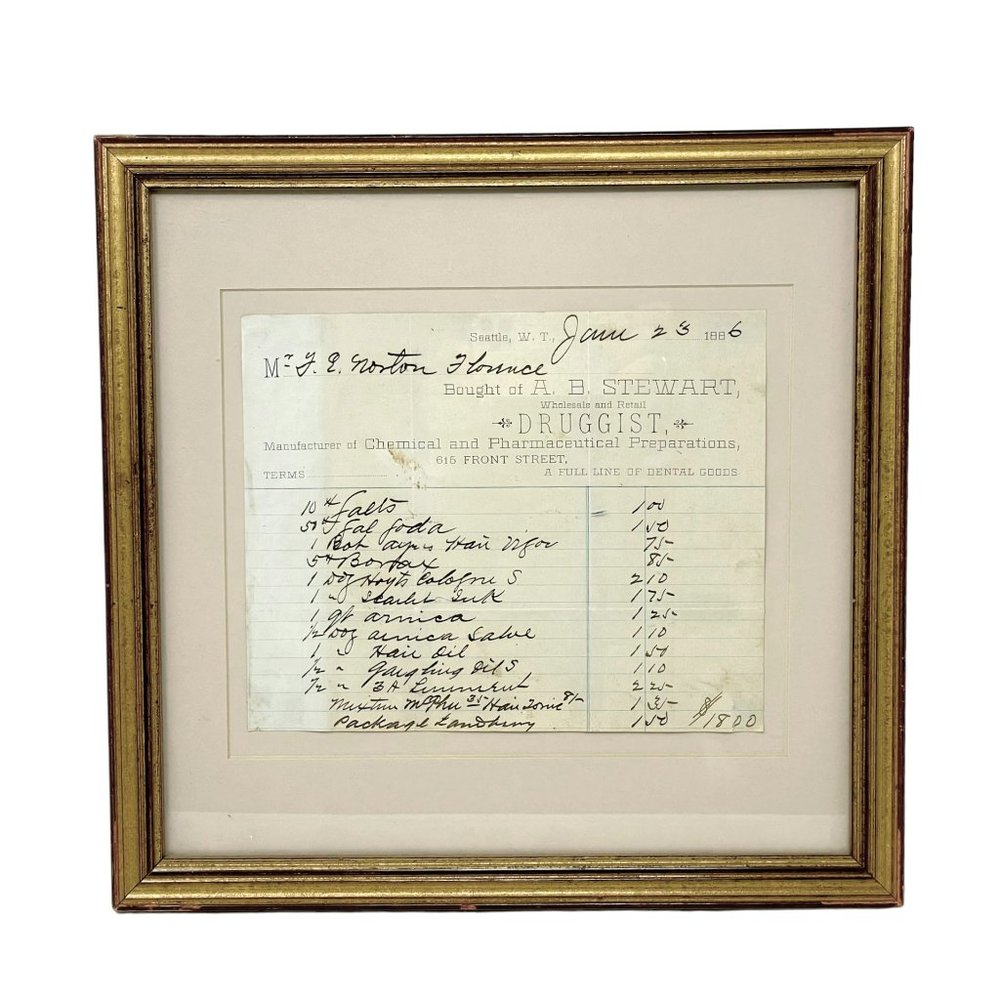 Seattle, W. T., Jan 23 1886
Mr F. E. Norton Florence
Bought of A. B. STEWART,
Wholesale and Retail
DRUGGIST,
Manufacturer of Chemical and Pharmaceutical Preparations,
615 FRONT STREET,
TERMS A FULL LINE OF DENTAL GOODS
10 # Salts 1 00
50 # Sal Soda 1 50
1 Bot Ayers Hair Vigor 75
5 # Borax 85
1 Doz Hoyts Cologne S 2 10
1 " Scarlet Ink 1 75
1 qt arnica 1 25
1/2 Doz arnica Salve 1 10
1 " Hair Oil 1 50
1/2 " Gargling Oil S 1 10
1/2 " Liniment 2 25
Mixture 35 Hair Tonic 1 35
Package 1 50 $18 00